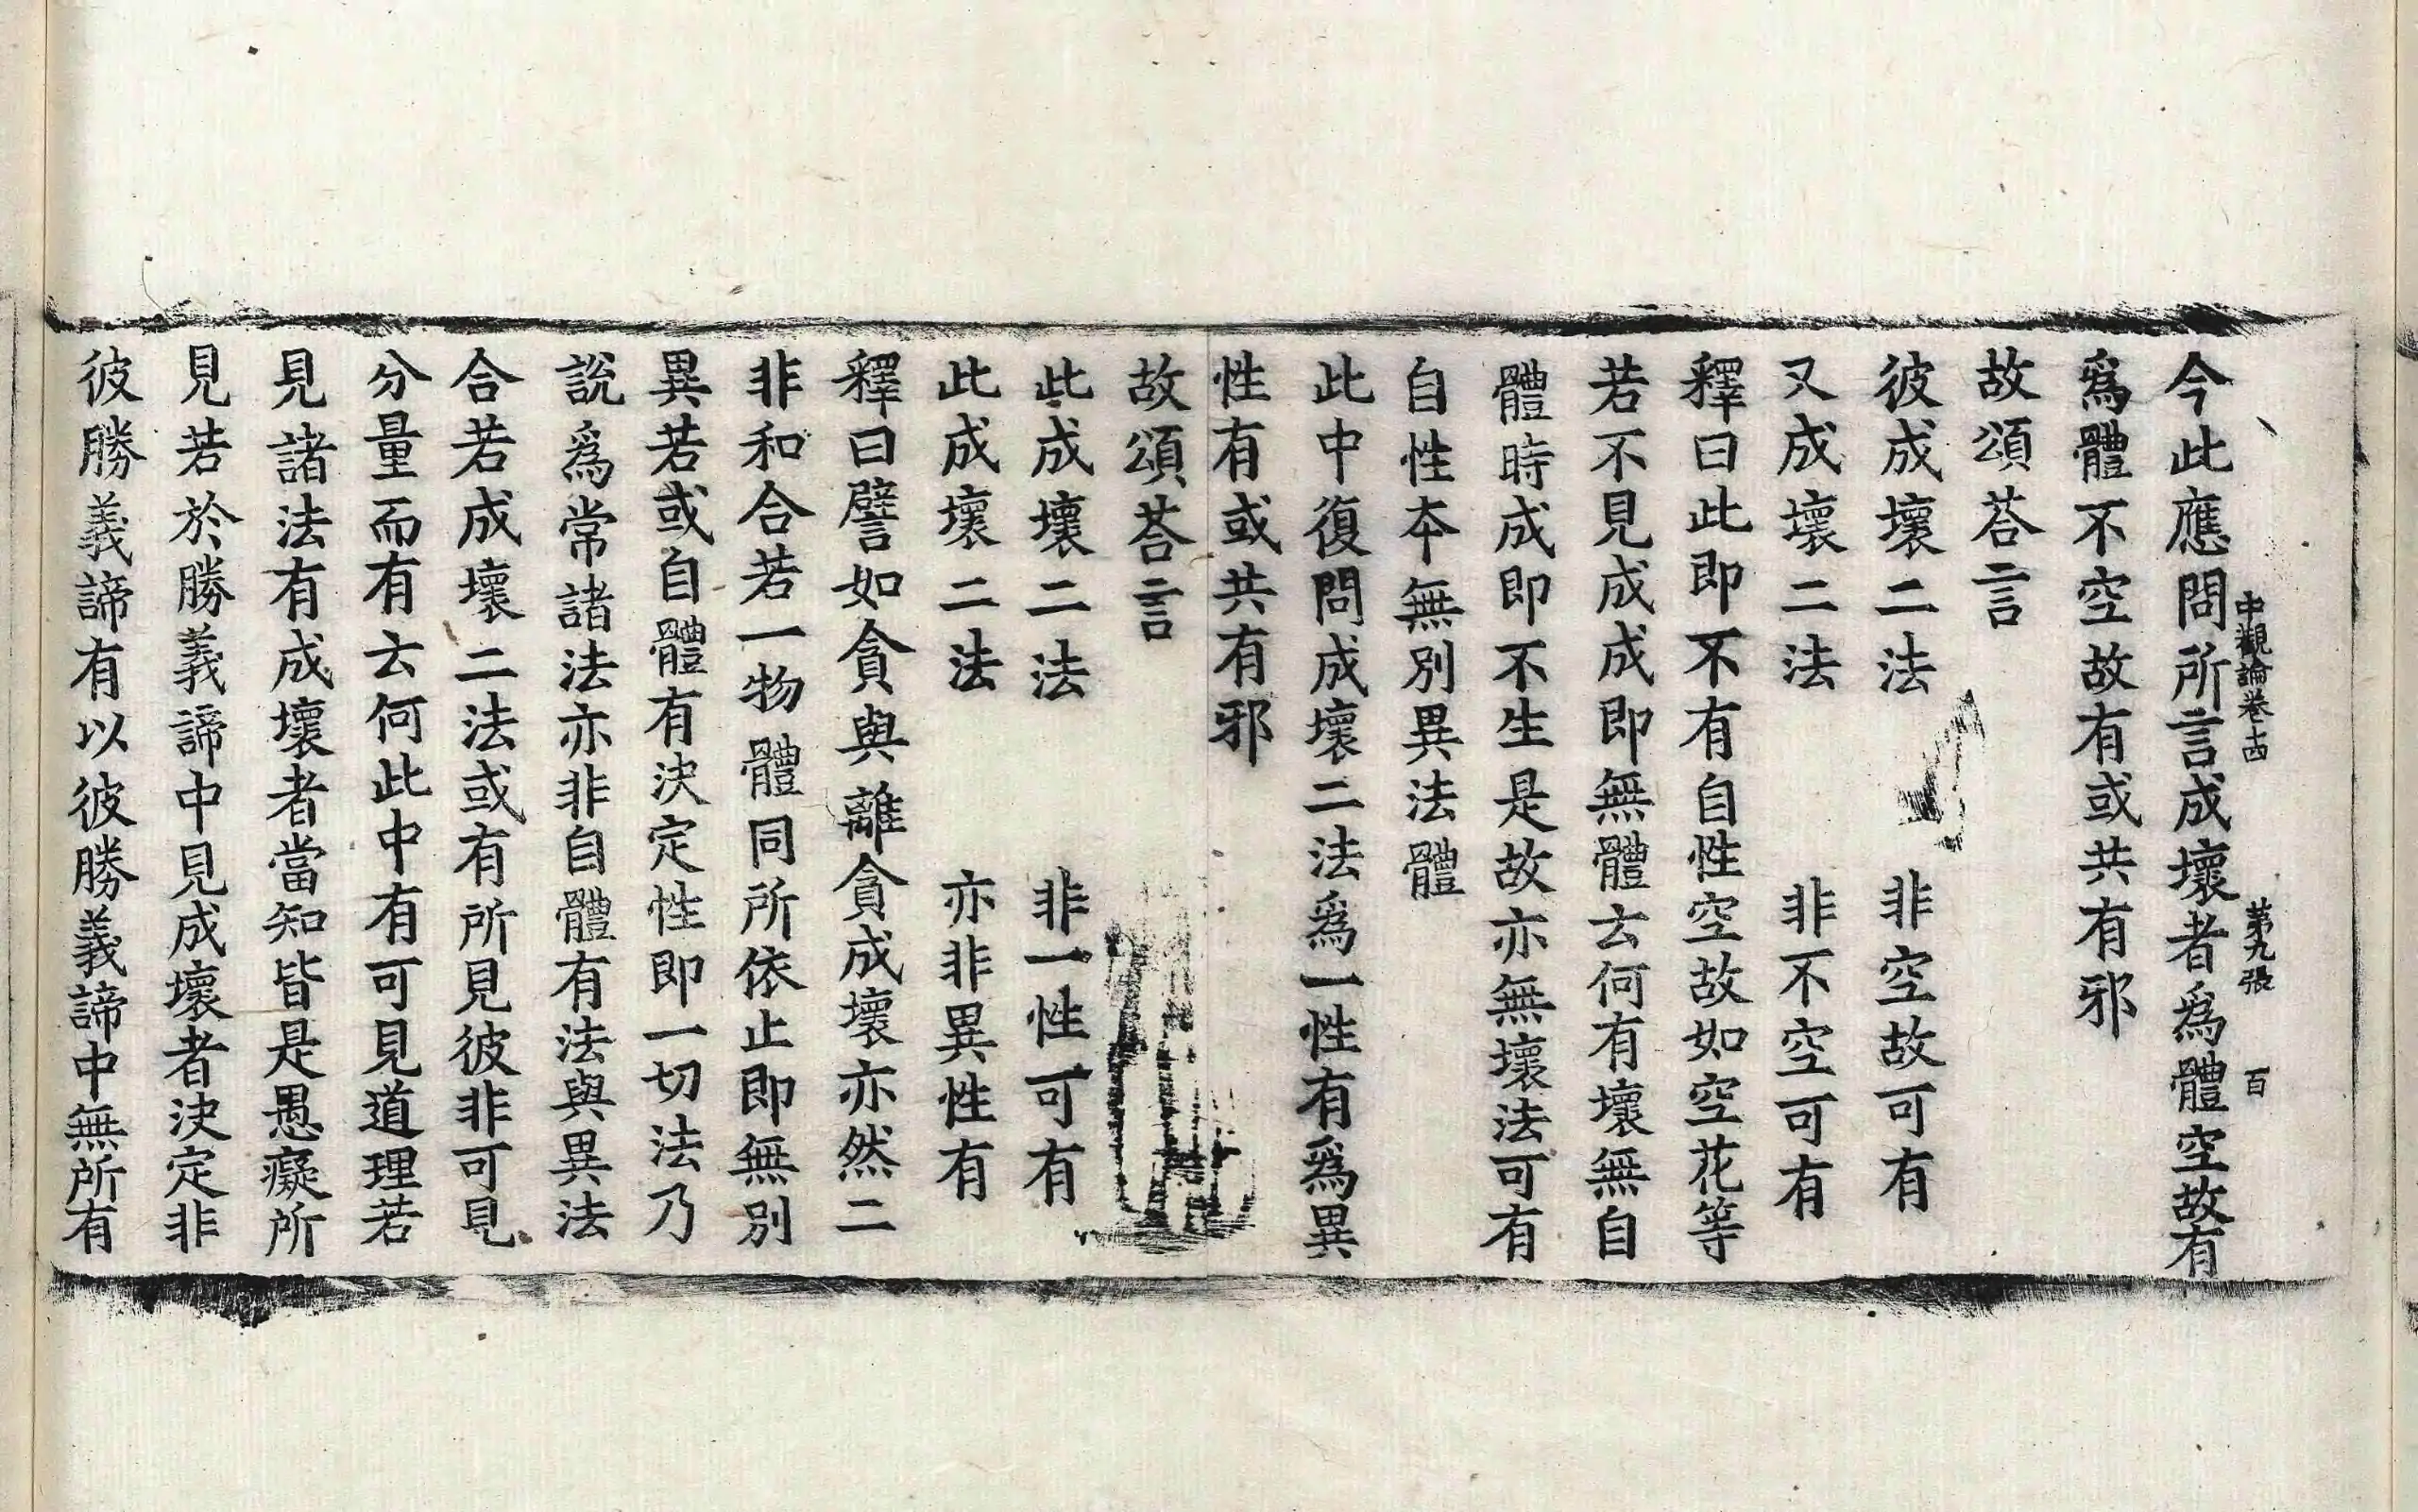 中觀論卷十四 第九張 百
今此應問所言成壞者爲體空故有
爲體不空故有或共有邪
故頌荅言
彼成壞二法 非空故可有
又成壞二法 非不空可有
釋曰此即不有自性空故如空花等
若不見成成即無體云何有壞無自
體時成即不生是故亦無壞法可有
自性夲無別異法體
此中復問成壞二法爲一性有爲異
性有或共有邪
故頌荅言
此成壞二法 非一性可有
此成壞二法 亦非異性有
釋曰譬如貪與離貪成壞亦然二
非和合若一物體同所依止即無別
異若或自體有決定性即一切法乃
說爲常諸法亦非自體有法與異法
合若成壞二法或有所見彼非可見
分量而有去何此中有可見道理若
見諸法有成壞者當知皆是愚癡所
見若於勝義諦中見成壞者決定非
彼勝義諦有以彼勝義諦中無所有